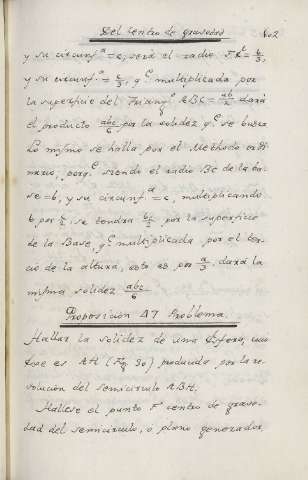 Del Centro de gravedad 602
y su circunf.ª = c, será el radio FK = b/3,
y su circunf.ª = c/3, q.e multiplicada por
la superficie del Triang.o ABC = ab/2 dará
el producto abc/6 por la solidez q.e se busca
Lo mismo se halla por el Methodo ordi
nario, porq.e siendo el radio BC de la ba-
se = b, y su circunf.ª = c, multiplicando
b por c/2, se tendra bc/2 por la superficie
de la Base, q.e multiplicada por el ter-
cio de la altura, esto es por a/3, dará la
misma solidez abc/6
Proposición 47 Problema.
Hallar la solidez de una Esfera, cuio
exe es AH (Fig 30) producido por la re-
volución del semicirculo ABH.
Hallese el punto F centro de grave-
dad del semicirculo, o plano generador,